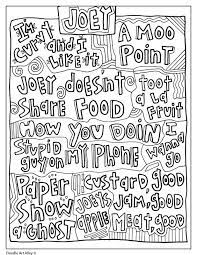 JOEY
I'm
CURVY
and I
LIKE it
A MOO
POINT
JOEY doesn't
SHARE FOOD
toot
a la
FRUIT
HOW YOU DOIN
STUPID
guy on my PHONE
I
wanna
GO
PAPER
SNOW
a GHOST
JOEY'S
apple
Custard, good
Jam, good
Meat, good
Doodle Art Alley ©